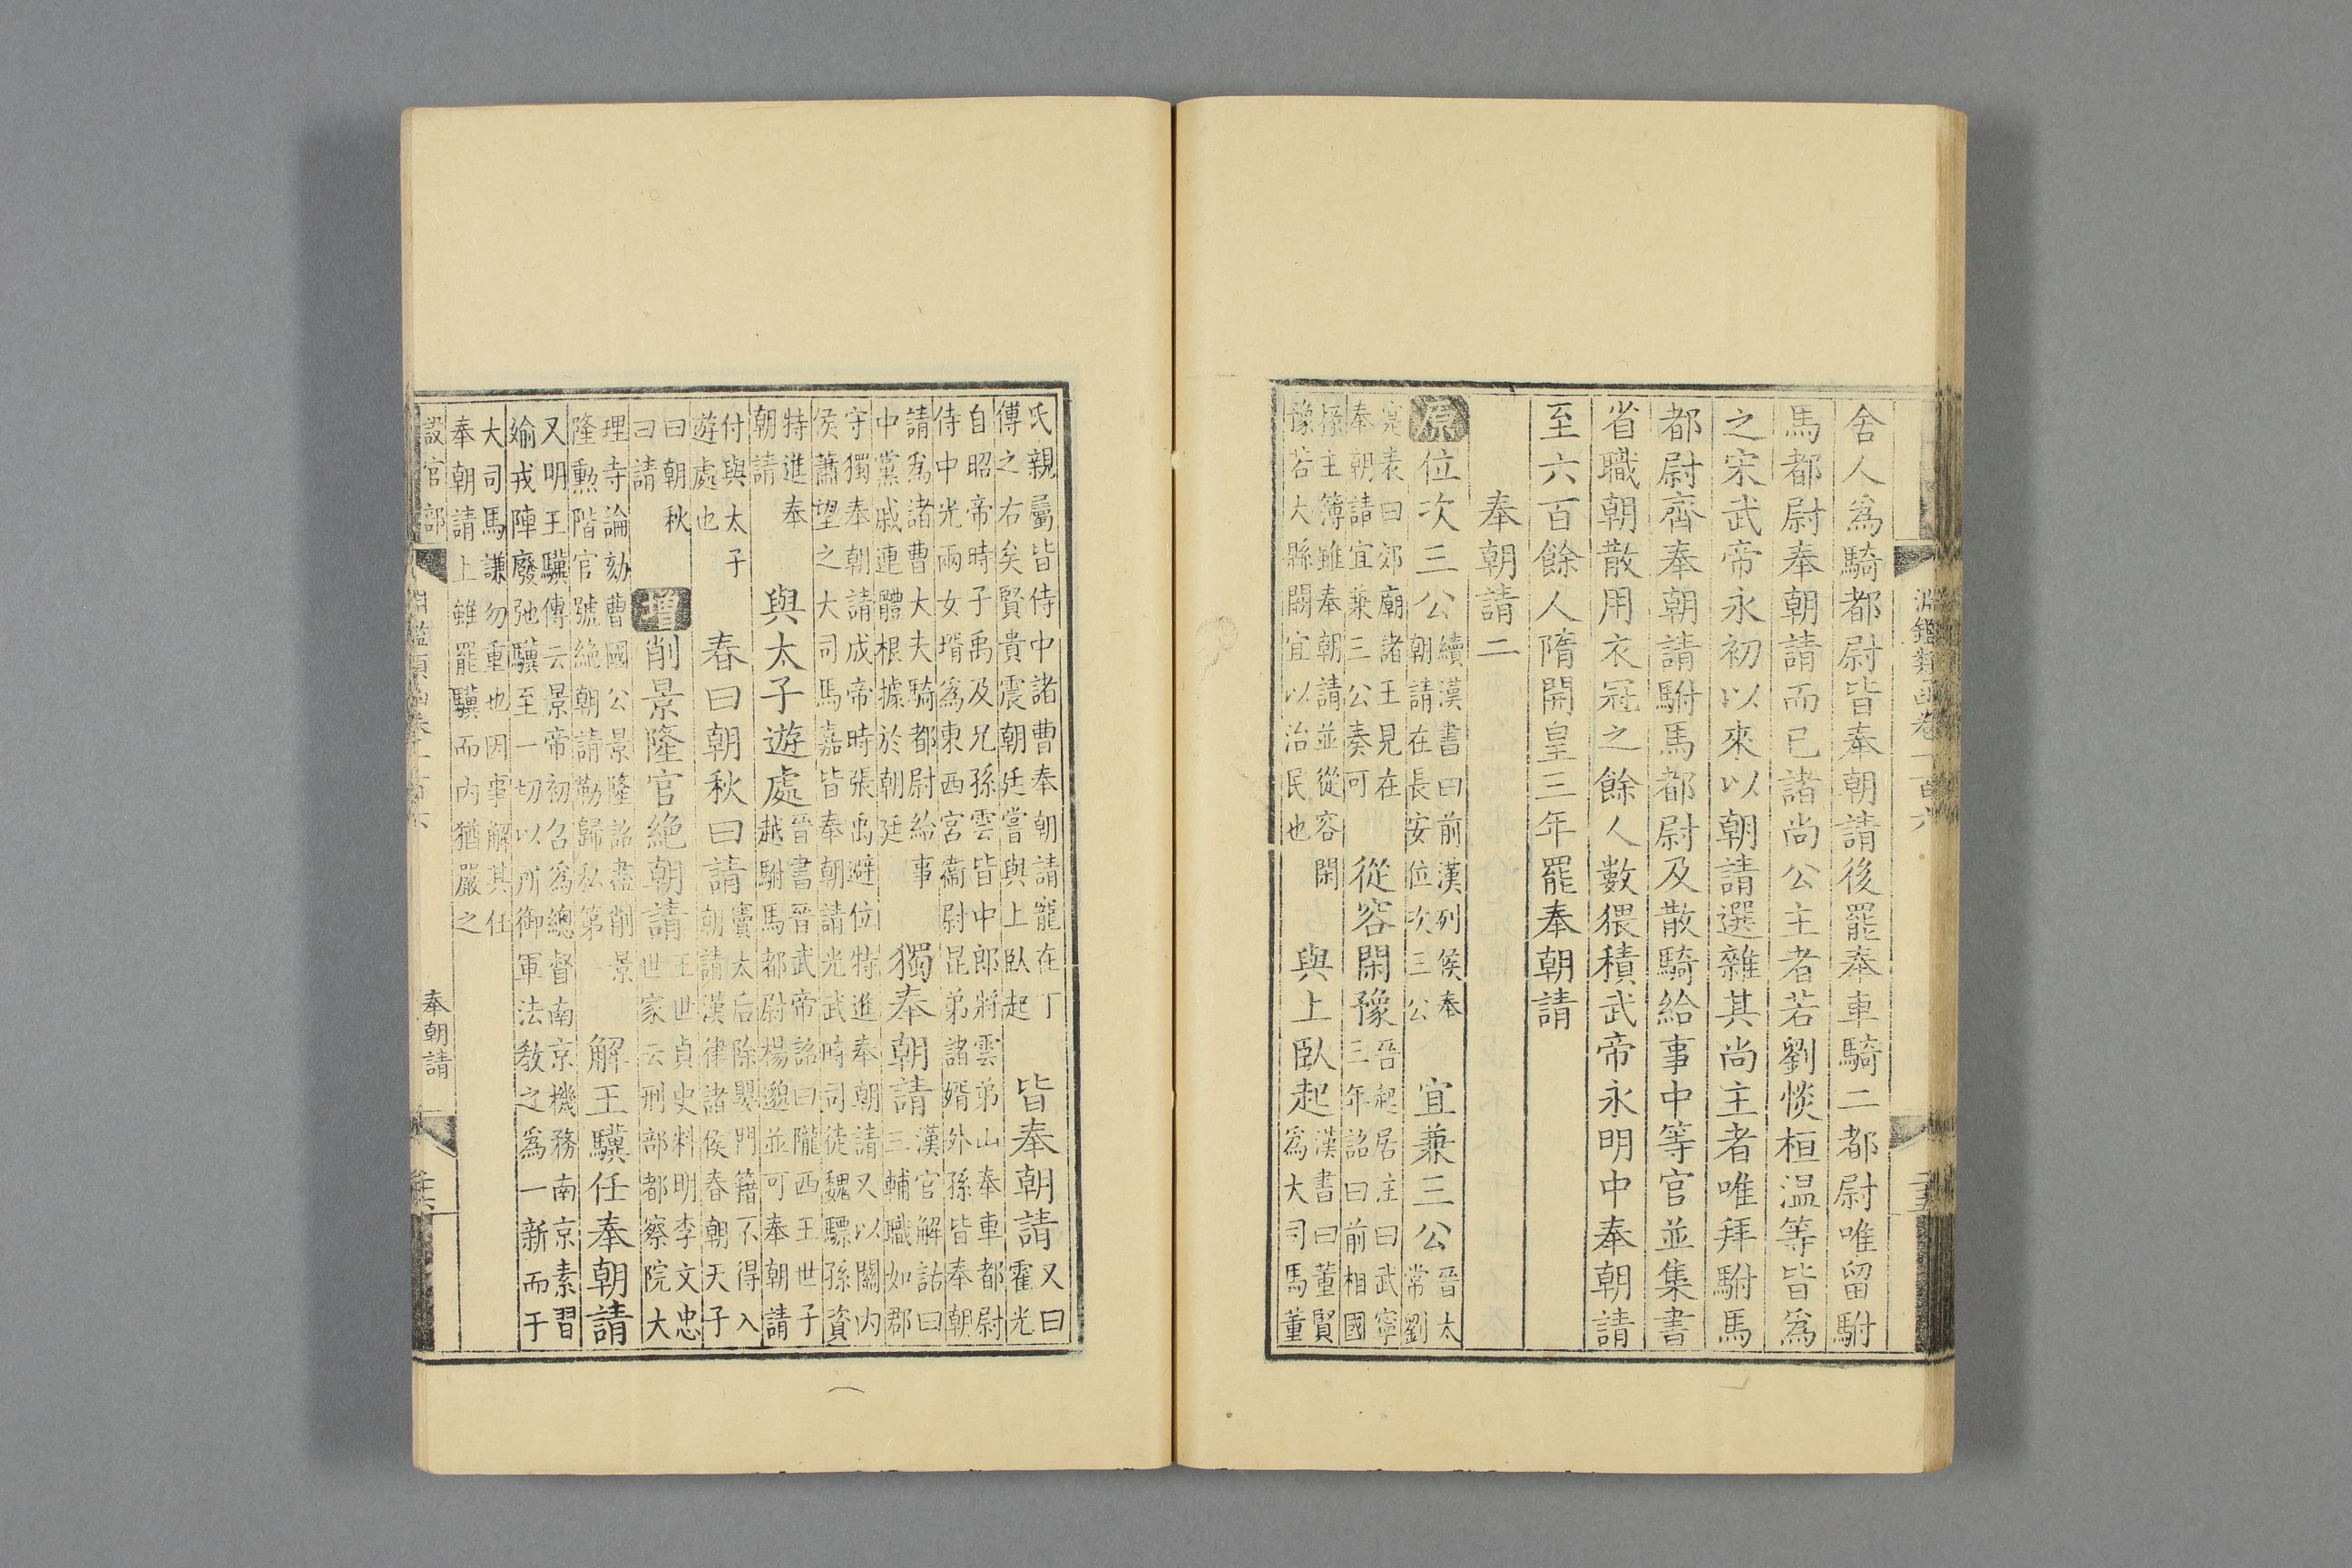 淵鑑類函卷一百六
舍人爲騎都尉皆奉朝請後罷奉車騎二都尉唯留駙
馬都尉奉朝請而已諸尚公主者若劉惔桓温等皆爲
之宋武帝永初以來以朝請選雜其尚主者唯拜駙馬
都尉齊奉朝請駙馬都尉及散騎給事中等官並集書
省職朝散用衣冠之餘人數猥積武帝永明中奉朝請
至六百餘人隋開皇三年罷奉朝請
奉朝請二
原位次三公
續漢書曰前漢列侯奉
朝請在長安位次三公
宜兼三公
晉太
常劉
寔表曰郊廟諸王見在
奉朝請宜兼三公奏可
從容閑豫
晉起居注曰武寧
三年詔曰前相國
掾主簿雖奉朝請並從容閑
豫若大縣闕宜以治民也
與上臥起
漢書曰董賢
爲大司馬董
氏親屬皆侍中諸曹奉朝請寵在丁
傅之右矣賢貴震朝廷嘗與上臥起
皆奉朝請
又曰
霍光
自昭帝時子禹及兄孫雲皆中郎將雲弟山奉車都尉
侍中光兩女壻爲東西宮衞尉昆弟諸婿外孫皆奉朝
請爲諸曹大夫騎都尉給事
中黨戚連體根據於朝廷
獨奉朝請
漢官解詁曰
三輔職如郡
守獨奉朝請成帝時張禹避位特進奉朝請又以關内
侯蕭望之大司馬嘉皆奉朝請光武時司徒魏驃孫資
特進奉
朝請
與太子遊處
晉書晉武帝詔曰隴西王世子
越駙馬都尉楊邈並可奉朝請
付與太子
遊處也
春曰朝秋曰請
竇太后除嬰門籍不得入
朝請漢律諸侯春朝天子
曰朝秋
曰請
增削景隆官絶朝請
王世貞史料明李文忠
世家云刑部都察院大
理寺論劾曹國公景隆詔盡削景
隆勲階官號絶朝請勒歸私第
解王驥任奉朝請
又明王驥傳云景帝初召爲總督南京機務南京素習
媮戎陣廢弛驥至一切以所御軍法教之爲一新而于
大司馬謙勿重也因事解其任
奉朝請上雖罷驥而内猶嚴之
設官部
奉朝請